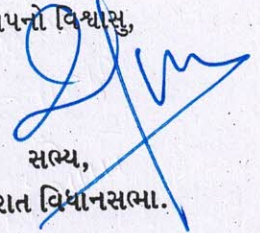 પનો વિશ્વાસુ,
સભ્ય,
ાત વિધાનસભા.